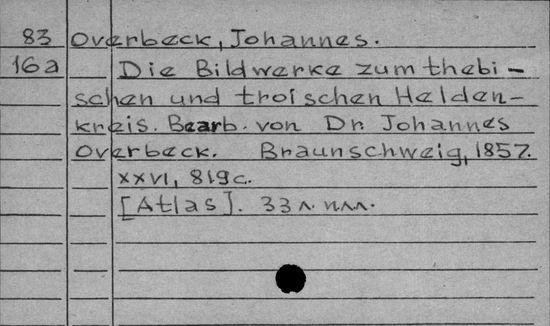 83 Overbeck, Johannes.
16a Die Bildwerke zum thebi-
schen und troischen Helden-
kreis. Bearb. von Dr. Johannes
Overbeck. Braunschweig, 1857.
XXVI, 819c.
[Atlas]. 33 л. илл.